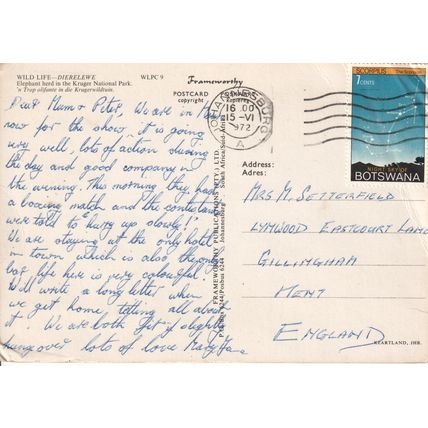 WILD LIFE—DIERELEWE WLPC 9
Elephant herd in the Kruger National Park.
'n Trop olifante in die Krugerwildtuin.
Frameworthy
POSTCARD
copyright
POSKAART
kopiereg
JOHANNESBURG
16.00
15-VI
1972
A
SCORPIUS The Scorpion
7 CENTS
NIGHT SKY OF
BOTSWANA
Address:
Adres:
FRAMEWORTHY PUBLICATIONS (PTY.) LTD.
Johannesburg South Africa/Suid-Afrika
Dear Mum & Peter, We are in
now for the show, it is going
very well, lots of action during
the day and good company in
the evening. This morning they had
a boxing match and the contestants
were told to hurry up slowly!
We are staying at the only hotel
in town which is also the only
bar, life here is very colourful.
Will write a long letter when
we get home telling all about
it. We are both fit if slightly
hungover lots of love Mary
MRS M. SETTERFIELD
LYNWOOD EASTCOURT LANE
GILLINGHAM
KENT
ENGLAND
HEARTLAND, JHB.